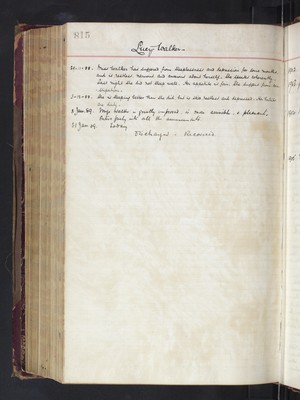 815
Lucy Walker.
30-11-88. Miss Walker has suffered from sleeplessness and depression for some months
and is restless nervous and anxious about herself. She speaks coherently.
Last night she did not sleep well. Her appetite is fair. She suffers from
3-12-88. She is sleeping better than she did but is still restless and depressed.
8 Jan 89. Miss Walker is greatly improved, is more sociable, & pleasant,
Enters freely into all the amusements.
21 Jan 89. Today
Discharged - Recovered.